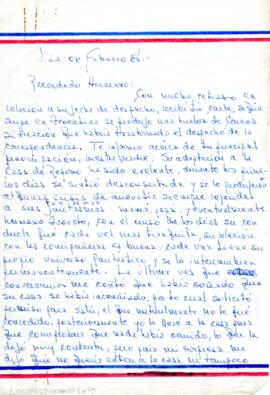 Viña 06 Febrero 86.-
Recordado Hermano:
Con mucho retraso en
relación a su fecha de despacho, recibí tu carta, según
supe en se produjo una huelga de Correos
situación que había trastornado el despacho de la
correspondencia. Te informo acerca de tu principal
preocupación, nuestra madre: Su adaptación a la
Casa de Reposo ha sido excelente, durante los prime-
ros días se sintió desconcertada y se le produjeron
algunas crisis de angustia siempre ligadas
a sus fantasmas: mamá, papá, y eventualmente
hermano Acosto, con el curso de los días su con-
ducta fue cada vez más tranquila, su relación
con las compañeras es buena, cada una tiene su
propio universo fantástico y se lo intercambian
permanentemente. La última vez que
conversamos me contó que había soñado que
su casa se había incendiado, para lo cual solicitó
permiso para salir, el que naturalmente no le fue
concedido, posteriormente yo la llevé a la casa para
que comprobara que nada había ocurrido, lo que la
dejó muy contenta, pero para mi sorpresa me
dijo que no quería estar en la casa ni tampoco